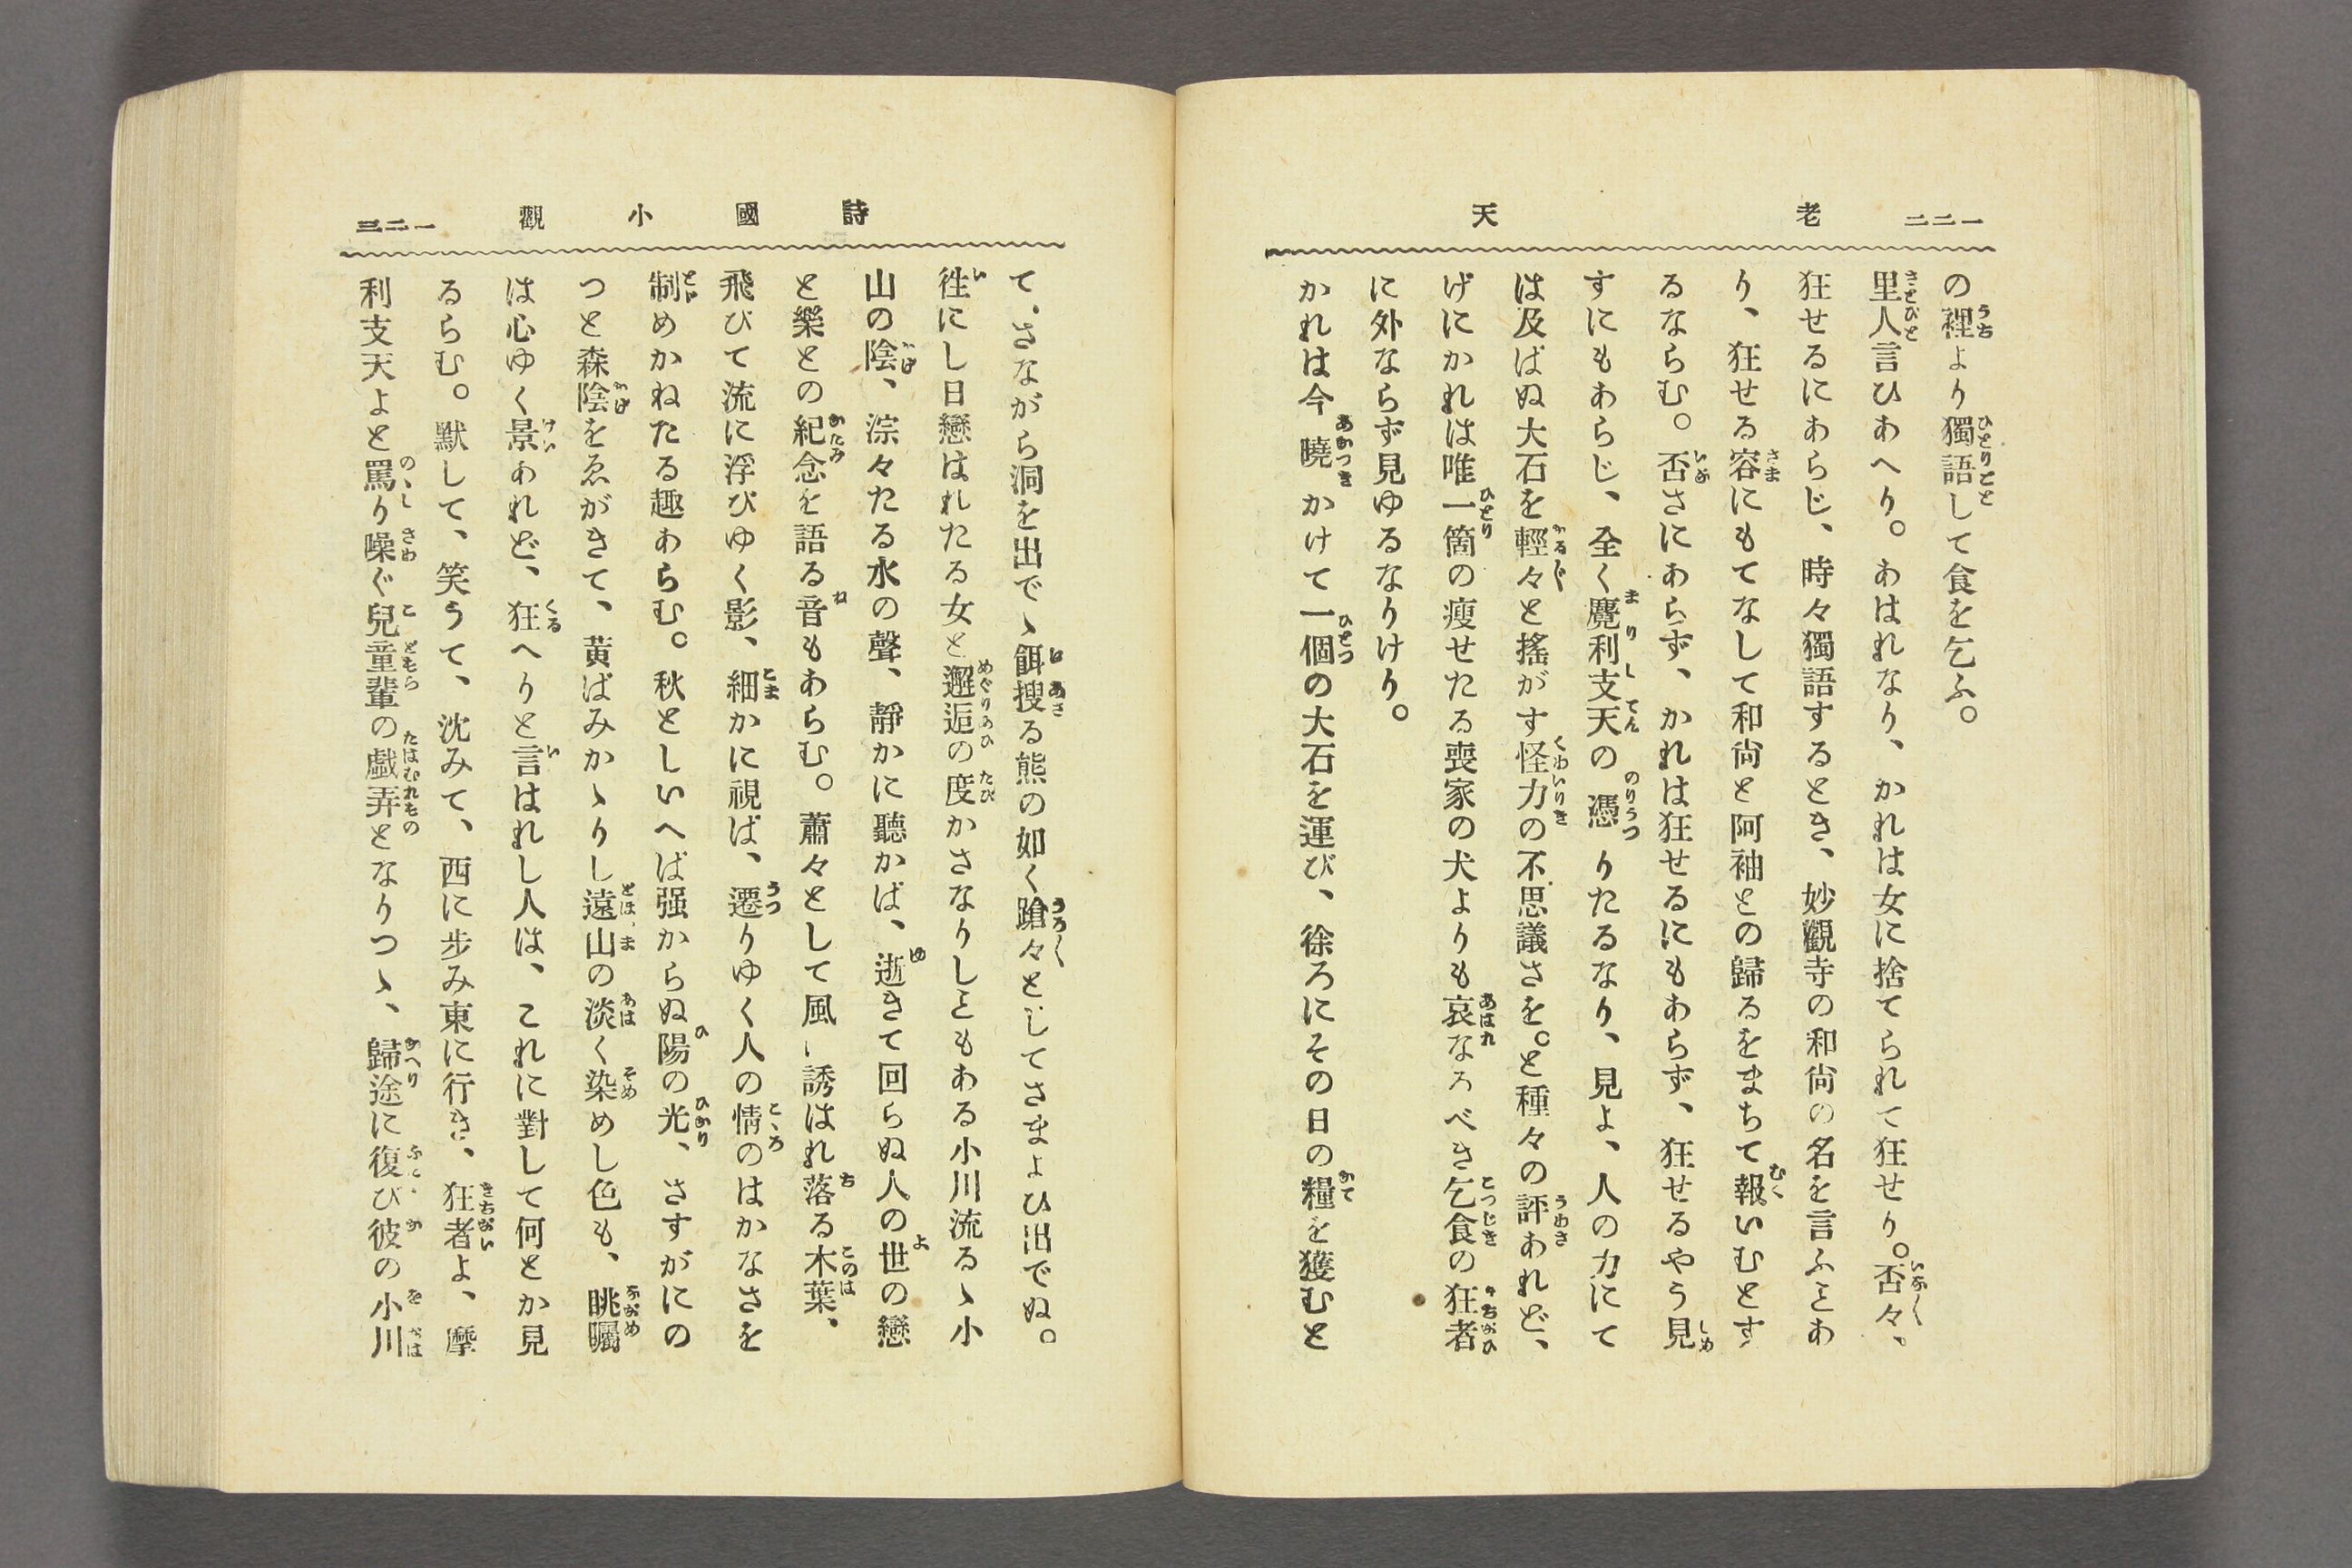 一二二
老天
の裡より獨語して食を乞ふ。
里人言ひあへり。あはれなり、かれは女に捨てられて狂せり。否々、
狂せるにあらじ、時々獨語するとき、妙觀寺の和尙の名を言ふことあ
り、狂せる容にもてなして和尙と阿袖との歸るをまちて報いむとす
るならむ。否さにあらず、かれは狂せるにもあらず、狂せるやう見
すにもあらじ、全く麾利支天の憑りたるなり、見よ、人の力にて
は及ばぬ大石を輕々と搖がす怪力の不思議さを。と種々の評あれど、
げにかれは唯一箇の瘦せたる喪家の犬よりも哀なるべき乞食の狂者
に外ならず見ゆるなりけり。
かれは今曉かけて一個の大石を運び、徐ろにその日の糧を獲むと
詩國小觀
一二三
て、さながら洞を出でゝ餌搜る熊の如く蹌々としてさまよひ出でぬ。
徃にし日戀はれたる女と邂逅の度かさなりしこともある小川流るゝ小
山の陰、淙々たる水の聲、靜かに聽かば、逝きて回らぬ人の世の戀
と樂との紀念を語る音もあらむ。蕭々として風に誘はれ落る木葉、
飛びて流に浮びゆく影、細かに視ば、遷りゆく人の情のはかなさを
制めかねたる趣あらむ。秋としいへば强からぬ陽の光、さすがにの
つと森陰をゑがきて、黄ばみかゝりし遠山の淡く染めし色も、眺矚
は心ゆく景あれど、狂へりと言はれし人は、これに對して何とか見
るらむ。默して、笑うて、沈みて、西に步み東に行き、狂者よ、摩
利支天よと罵り噪ぐ兒童輩の戲弄となりつゝ、歸途に復び彼の小川